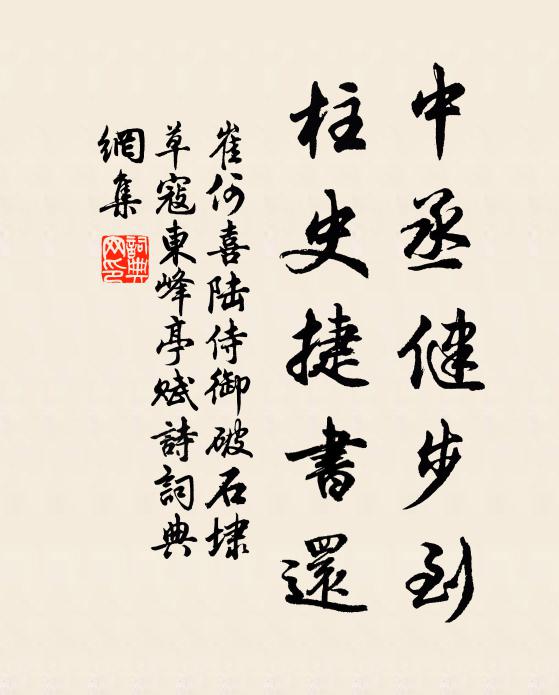 中丞健步到
柱史捷書還
崔何喜陸侍御破石埭
草寇東峰亭賦詩詞典
網集
詞典
网印